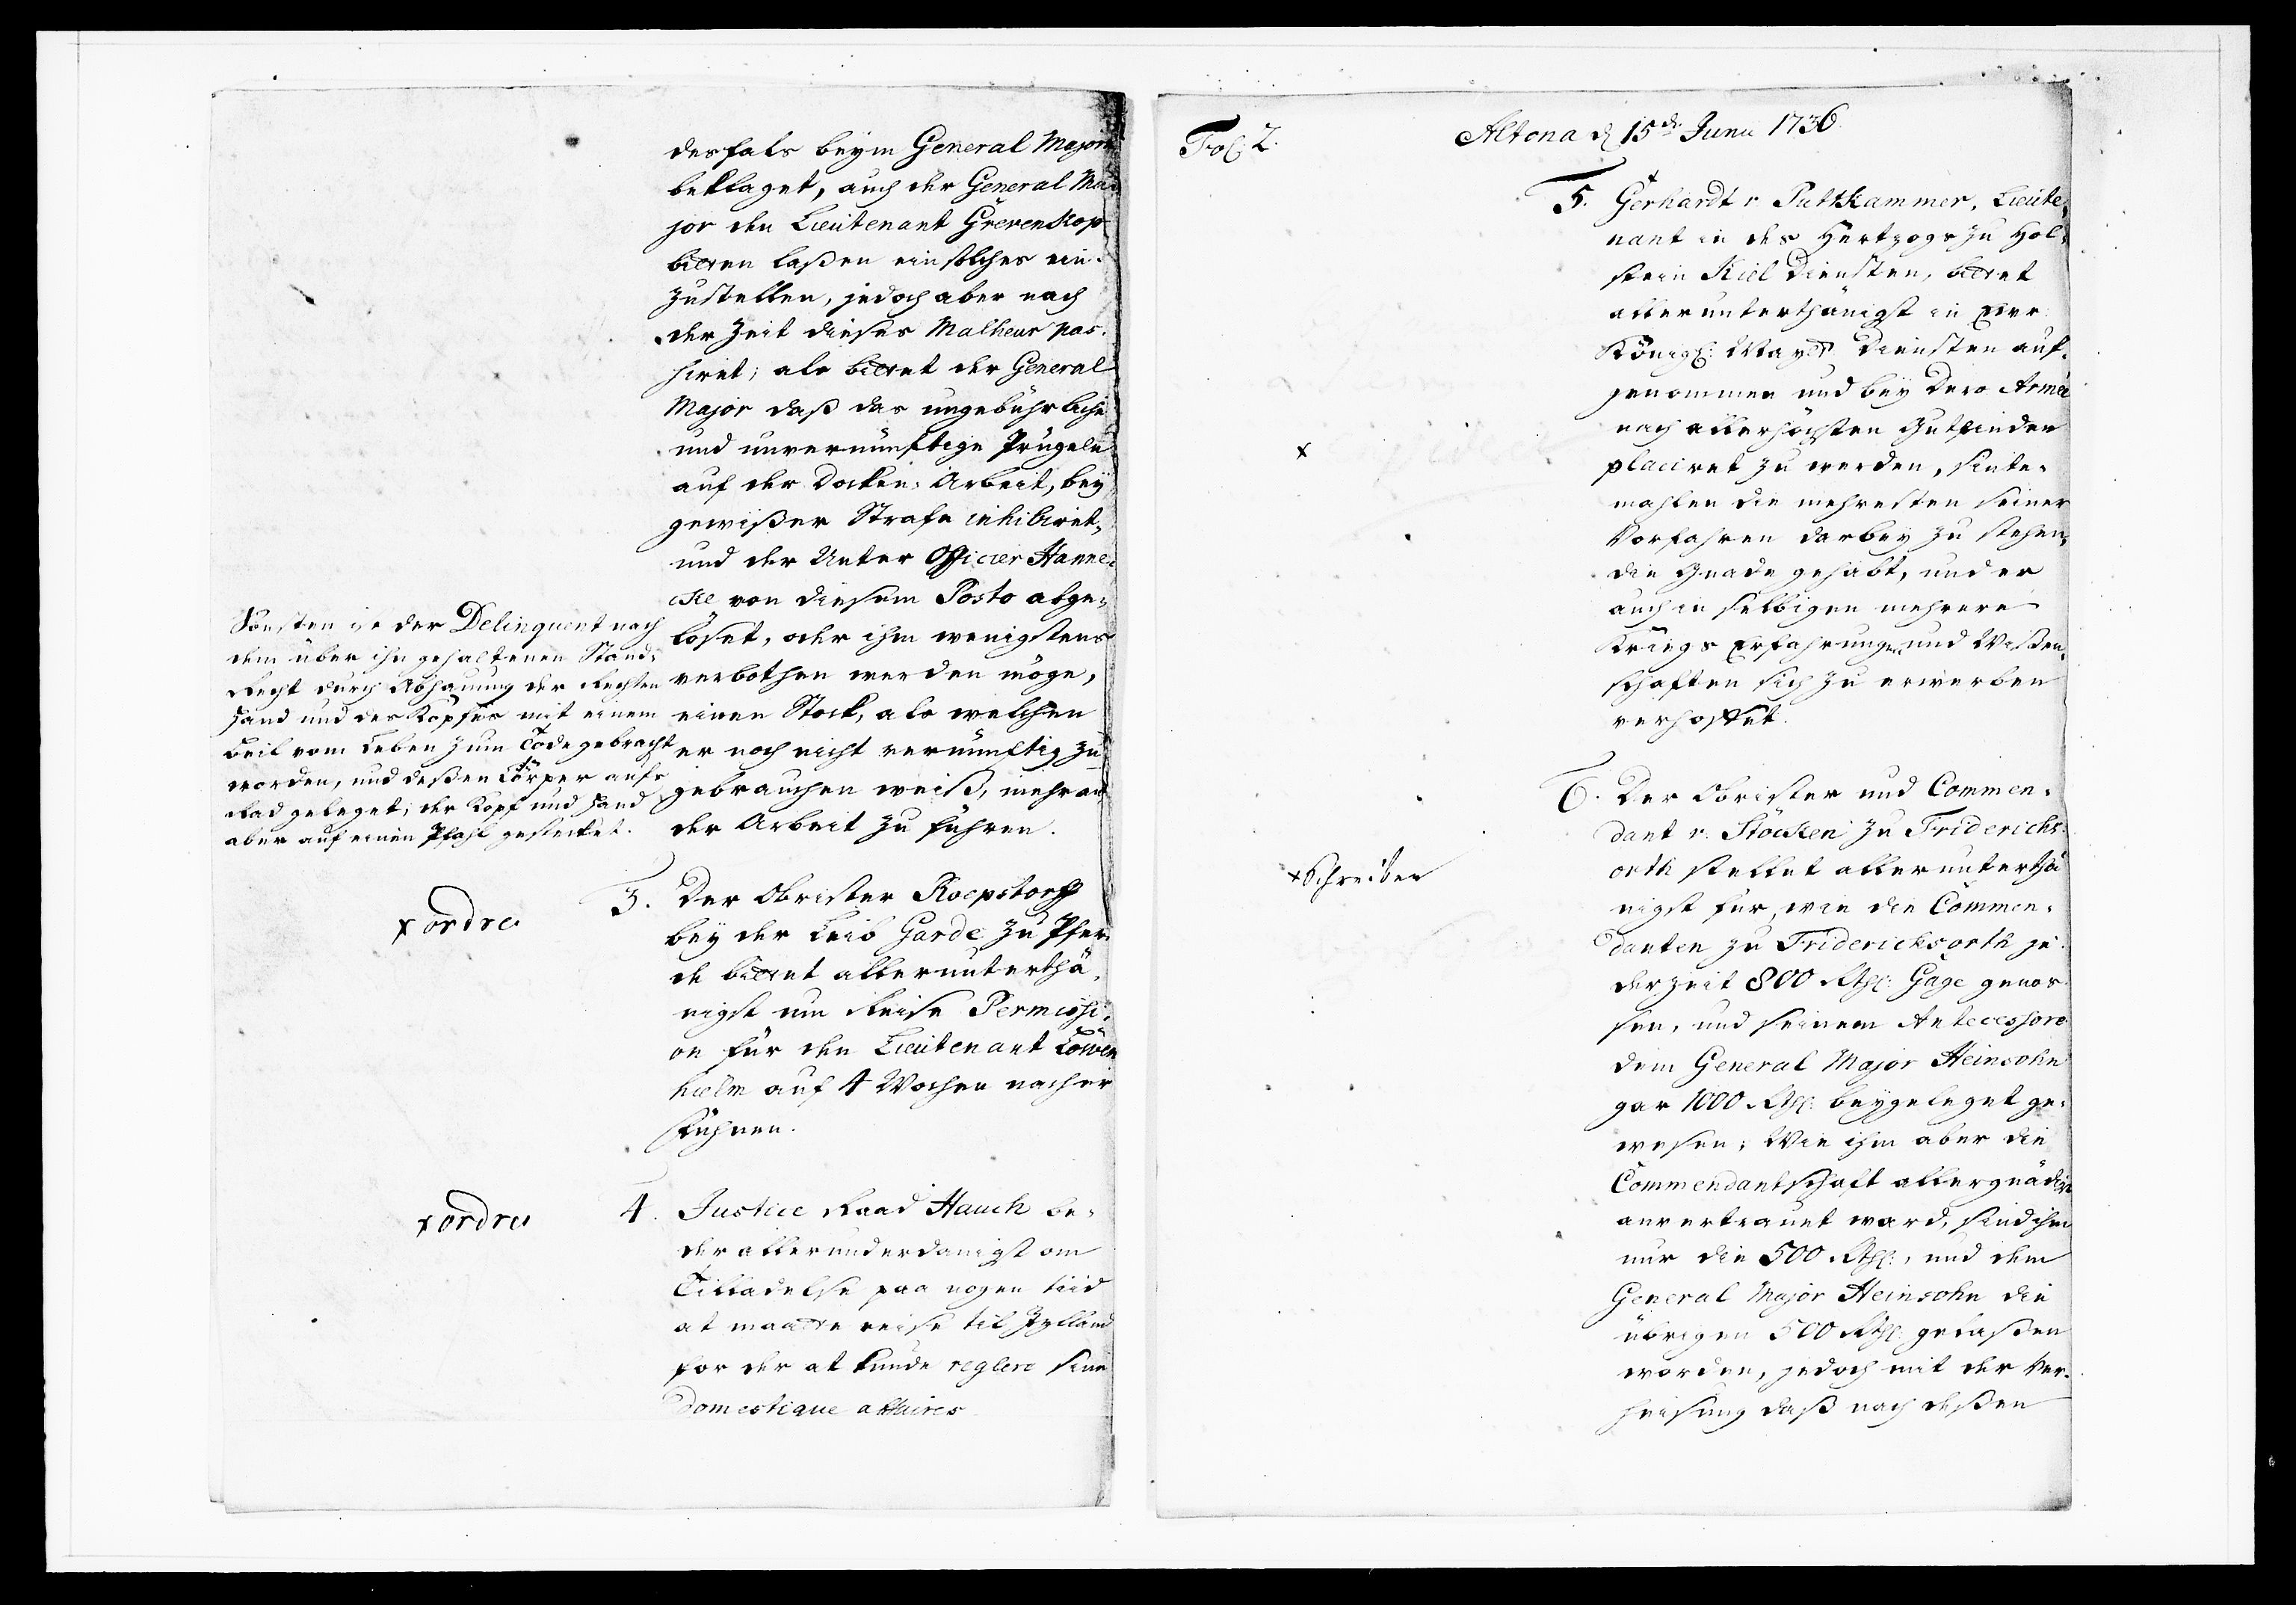 desfals beym General Major
beklaget, auch der General Ma¬
jor den Lieutenant Grevenkop
bitten laßen ein solches ein¬
zustellen, jedoch aber nach
der Zeit dieses Malheur pas¬
siret; als bittet der General
Major daß das ungebührliche
und unvernünftige Prügeln
auf der Docken-Arbeit, bey
gewißer Strafe inhibiret,
und der Unter Officier Hanne¬
cke von diesem Posto abge¬
löset, oder ihm wenigstens
verbothen werden möge,
einen Stock, als welchen
er noch nicht vernünftig zu
gebrauchen weiß, mehr an
der Arbeit zu führen.
Sonsten ist der Delinquent nach
dem über ihn gehaltenen Stand¬
Recht durch Abhauung der Rechten
Hand und des Kopfes mit einem
Beil vom Leben zum Tode gebracht
worden, und deßen Cörper aufs
Rad geleget, der Kopf und Hand
aber auf einen Pfahl gestecket.
x ordre
3. Der Obrister Roepstorff
bey der Leib Garde zu Pfer¬
de bittet allerunterthä¬
nigst um Reise Permissi¬
on für den Lieutenant Löwen
hielm auf 4 Wochen nacher
Führen.
x ordre
4. Justice Raad Hauch be¬
der allerunderdanigst om
Tilladelse paa nogen tiid
at maatte reise til Jylland
for der at kunde reglere sine
Domestique affaires
Fol: 2.
Altona d 15den Junii 1736.
5. Gerhardt v. Puttkammer, Lieute¬
nant in des Hertzogs zu Hol¬
stein Kiel Diensten, bittet
allerunterthänigst in Ewr.
Königl: Mayt: Diensten auf¬
genommen und bey Dero Armée
nach allerhöchsten Gutfinden
placiret zu werden, sinte¬
mahlen die mehresten seiner
Vorfahren darbey zu stehen,
die Gnade gehabt, und er
auch in selbigen mehrere
Kriegs Erfahrungen und Wißen¬
schaften sich zu erwerben
verhoffet.
x
6. Der Obrister und Commen¬
dant v. Stöcken zu Friderichs¬
orth stellet allerunterthä
nigst für, wie die Commen¬
danten zu Friderichsorth je¬
derzeit 800 Rthl: Gage genos¬
sen, und seinem Antecessore
dem General Major Heinsohn
gar 1000 Rthl: beygeleget ge¬
wesen; Wie ihm aber die
Commendantschaft allergnädigst
anvertrauet ward, sind ihm
nur die 500 Rthl:, und dem
General Major Heinsohn die
übrigen 500 Rthl: gelaßen
worden, jedoch mit der Ver¬
heisung daß nach deßen
x Schreiben